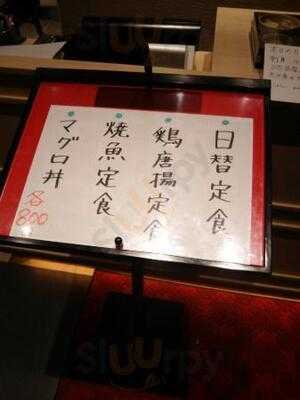 日替定食
鶏唐揚定食
焼魚定食
マグロ丼
各
800
Sluurpy